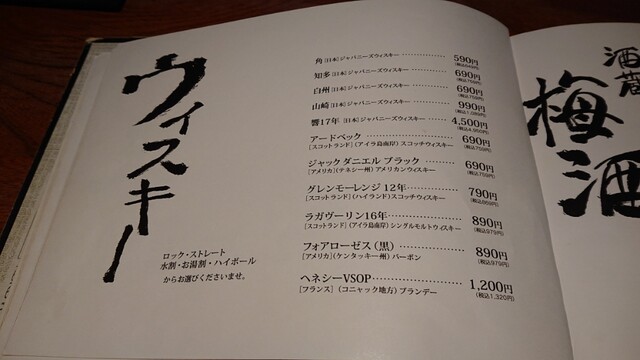 ウィスキー
ロック・ストレート
水割・お湯割・ハイボール
からお選びくださいませ。
角 [日本]ジャパニーズウィスキー………………590円
(税込649円)
知多 [日本]ジャパニーズウィスキー……………690円
(税込759円)
白州 [日本]ジャパニーズウィスキー……………690円
(税込759円)
山崎 [日本]ジャパニーズウィスキー……………990円
(税込1,089円)
響17年 [日本]ジャパニーズウィスキー…………4,500円
(税込4,950円)
アードベック……………………690円
[スコットランド](アイラ島南岸) スコッチウィスキー (税込759円)
ジャック ダニエル ブラック………690円
[アメリカ](テネシー州) アメリカンウィスキー (税込759円)
グレンモーレンジ 12年……………790円
[スコットランド](ハイランド) スコッチウィスキー (税込869円)
ラガヴーリン16年…………………890円
[スコットランド](アイラ島南岸) シングルモルトウィスキー (税込979円)
フォアローゼス(黒)………………890円
[アメリカ](ケンタッキー州) バーボン (税込979円)
ヘネシーVSOP……………………1,200円
[フランス] (コニャック地方) ブランデー (税込1,320円)
酒蔵
梅酒